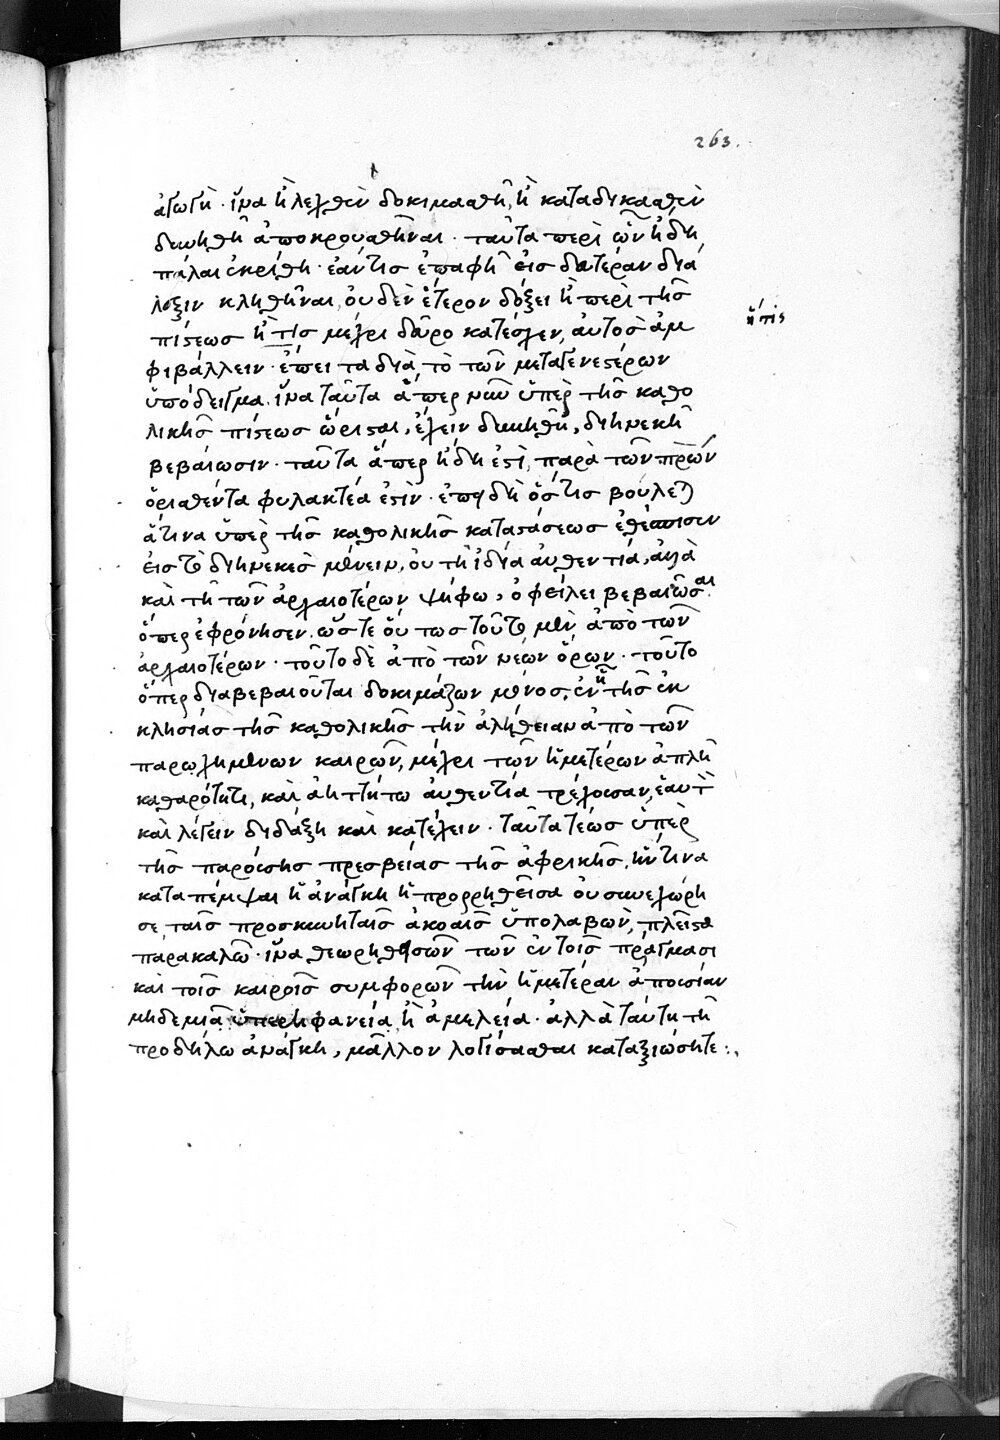 263.
ἀγωγὴ · ἵνα ἢ λεχθὲν δοκιμασθῇ, ἢ καταδικασθὲν
δυνηθῇ ἀποκρουσθῆναι · ταῦτα περὶ ὧν ἤδη
πάλαι ἐκρίθη · ἐάν τις ἐπαφῇ εἰς δευτέραν διά
λεξιν κληθῆναι, οὐδὲν ἕτερον δόξει ἢ περὶ τῆς
πίστεως ἥ τις μέχρι δεῦρο κατέσχεν, αὐτὸς ἀμ
ἥτις
φιβάλλειν · ἔπειτα διὰ τὸ τῶν μεταγενεστέρων
ὑπόδειγμα. ἵνα ταῦτα ἅπερ νῦν ὑπὲρ τῆς καθο
λικῆς πίστεως ὥρισται, ἔχειν δυνηθῇ, διηνεκῆ
βεβαίωσιν · ταῦτα ἅπερ ἤδη ἐστὶ παρὰ τῶν πρων
ὁρισθέντα φυλακτέα ἐστὶν · ἐπειδὴ ὅστις βούλεται
ἅτινα ὑπὲρ τῆς καθολικῆς καταστάσεως ἐθέσπισεν
εἰς τὸ διηνεκὲς μένειν, οὐ τῇ ἰδίᾳ αὐθεντίᾳ, ἀλλὰ
καὶ τῇ τῶν ἀρχαιοτέρων ψήφῳ, ὀφείλει βεβαιῶσαι
ὅπερ ἐφρόνησεν. ὥστε οὕτως τοῦτο μὲν ἀπὸ τῶν
ἀρχαιοτέρων · τοῦτο δὲ ἀπὸ τῶν νέων ὅρων · τοῦτο
ὅπερ διαβεβαιοῦται δοκιμάζων μένος, ἐν ἢ τῆς ἐκ
κλησίας τῆς καθολικῆς τὴν ἀλήθειαν ἀπὸ τῶν
παρῳχημένων καιρῶν, μέχρι τῶν ἡμετέρων ἁπλῇ
καθαρότητι, καὶ ἀηττήτῳ αὐθεντίᾳ τρέχουσαν, ἑαυτ
καὶ λέγειν διδάξῃ καὶ κατέχειν · ταῦτα τέως ὑπὲρ
τῆς παρούσης πρεσβείας τῆς ἀφρικῆς, ἥν τινα
καταπέμψαι ἡ ἀνάγκη ἡ προρρηθεῖσα οὐ συνεχώρη
σε, ταῖς προσκυνηταῖς ἀκοαῖς ὑπολαβὼν, πλεῖστα
παρακαλῶ · ἵνα θεωρηθησῶν τῶν ἐν τοῖς πράγμασι
καὶ τοῖς καιροῖς συμφορῶν τὴν ἡμετέραν ἀπουσίαν
μηδεμιᾷ ὑπερηφανείᾳ ἢ ἀμελείᾳ · ἀλλὰ ταύτῃ τῇ
προδήλῳ ἀνάγκῃ, μᾶλλον λογίσασθαι καταξιώσητε :.